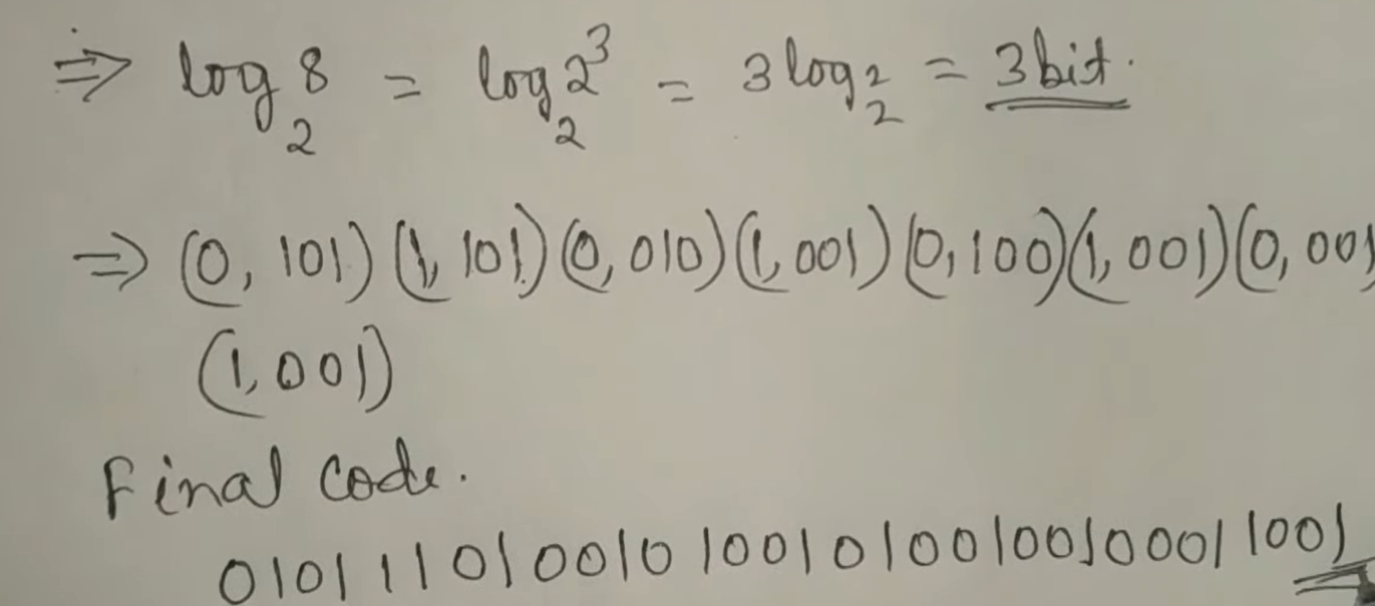 ⇒ log₂ 8 = log₂ 2³ = 3 log₂ 2 = 3 bit.
⇒ (0, 101) (1, 101) (0, 010) (1, 001) (0, 100) (1, 001) (0, 001)
(1, 001)
Final code.
01011101001010010100100100011001